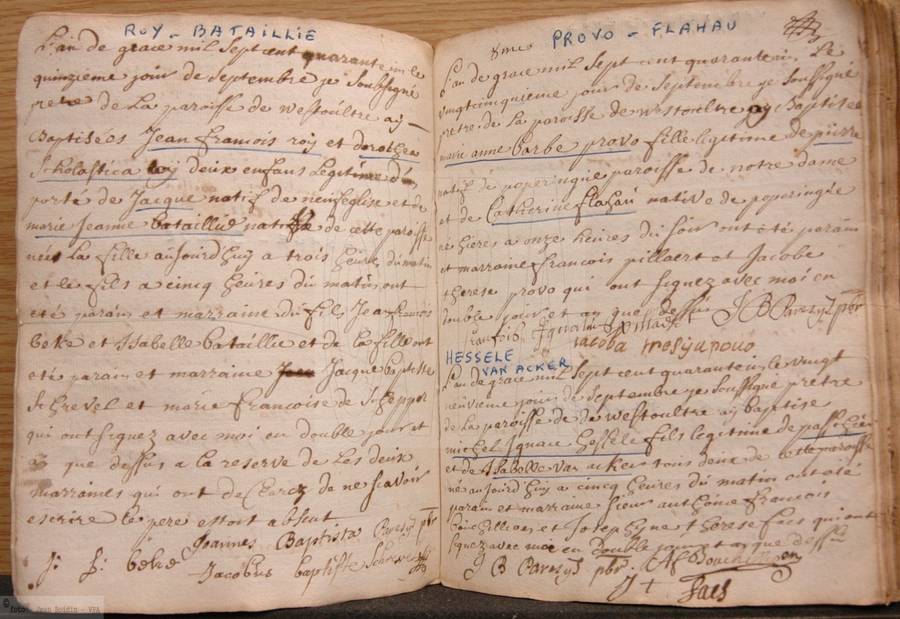 ROY - BATAILLIE
L'an de grace mil sept cent quarante un le
quinzieme jour de septembre je soussigné
pretre de la paroisse de westoultre ay
Baptisées Jean francois roy et dorothea
Scholastica roy deux enfans legitime
porte de Jacque natif de neuf eglise et de
marie Jeanne bataillie native de cette paroisse
nées la fille aujourdhuy a trois heures du matin
et le fils a cinq heures du matin ont
eté parain et marraine du fils Jea francois
beke et Isabelle bataillie et de la fille ont
eté parain et marraine Jacque baptiste
Schrevel et marie francoise de
qui ont signez avec moi en double jour et
an que dessus a la reserve de les deux
marraines qui ont declarez de ne scavoir
escrire le pere estoit absent
Joannes Baptista pbr
J: f: beke
Jacobus baptiste
PROVO - FLAHAU
L'an de grace mil sept cent quarante un le
vingtcinquieme jour de septembre je soussigné
pretre de la paroisse de westoultre ay Baptisée
marie anne barbe provo fille legitime de pierre
natif de poperingue paroisse de notre dame
et de Catherine flahau native de poperingue
née hiere a onze heures du soir ont eté parain
et marraine francois pillaert et Jacobe
therese provo qui ont signez avec moi en
double jour et an que dessus J B pbr
jacoba
HESSELE
VAN ACKER
L'an de grace mil sept cent quarante un le vingt
neuvieme jour de septembre je soussigné pretre
de la paroisse de de westoultre ay baptisé
michel Ignace hessele fils legitime de
et de Isabelle van acker tous deux de cette paroisse
né aujourdhuy a cinq heures du matin ont eté
parain et marraine sieur anthoine francois
et Joseph therese faes qui ont
signez avec moi en double jour et an que dessus
J B pbr
faes
© foto: Jean Boidin - VFA